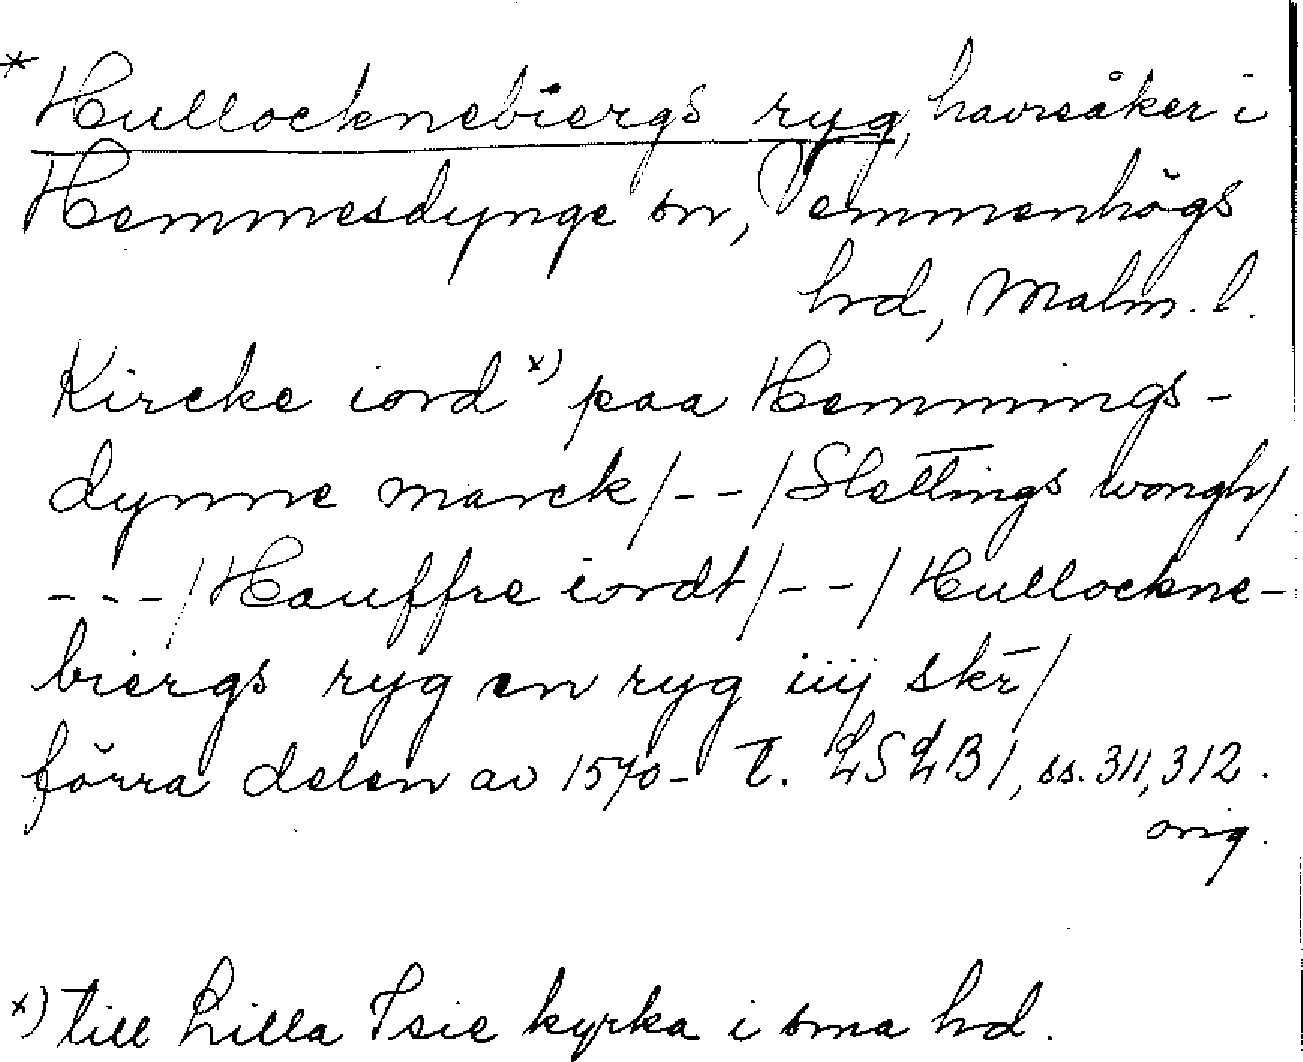 * Hullocknebiergs ryg, havreåker i
Hemmesdynge sn, Vemmenhögs
hd, Malm. l.
Kircke iord x) paa Hemmings-
dynne marck/--/Slettings wongh/
---/Hauffre iordt/--/Hullockne-
biergs ryg en ryg iiij skr̄/
förra delen av 1570- t. LSLB 1, ss. 311, 312.
orig.
x) till Lilla Isie kyrka i sma hd.